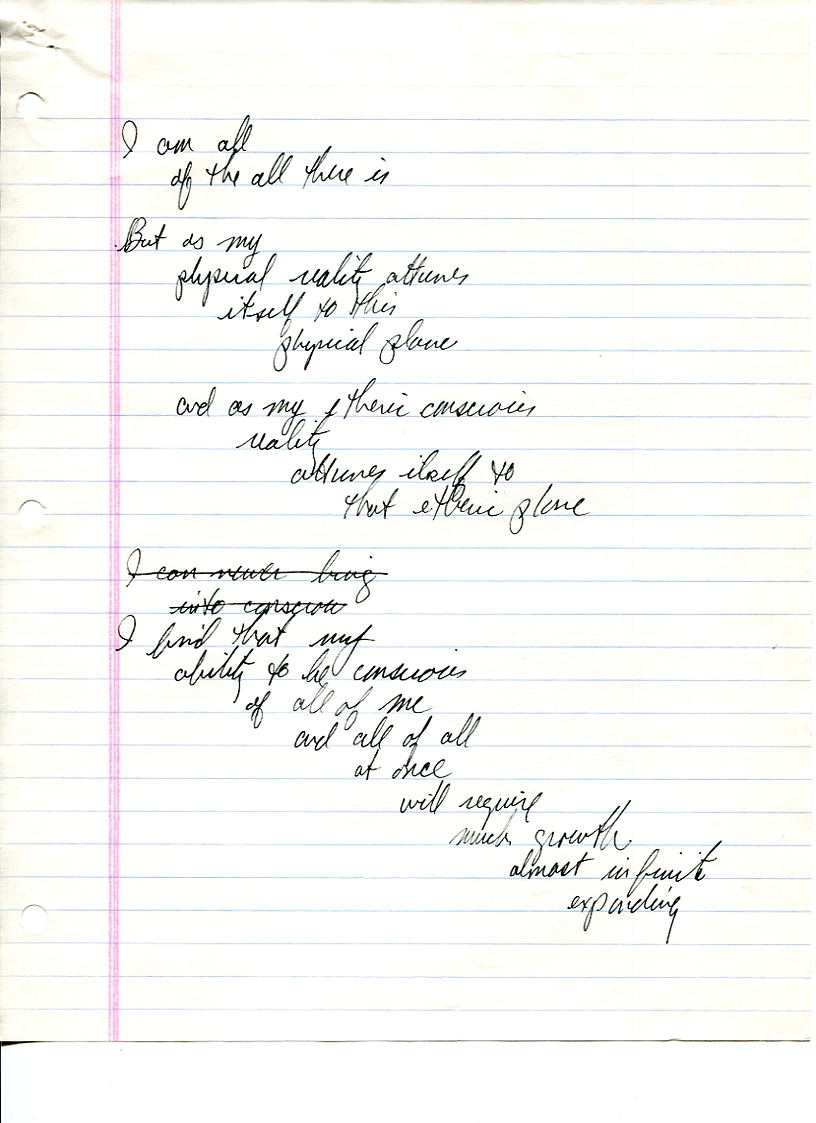 I am all
of the all there is
But as my
physical reality attunes
itself to this
physical plane
and as my etheric conscious
reality
attunes itself to
that etheric plane
I can never bring
into conscious
I find that my
ability to be conscious
of all of me
and all of all
at once
will require
much growth
almost infinite
expanding